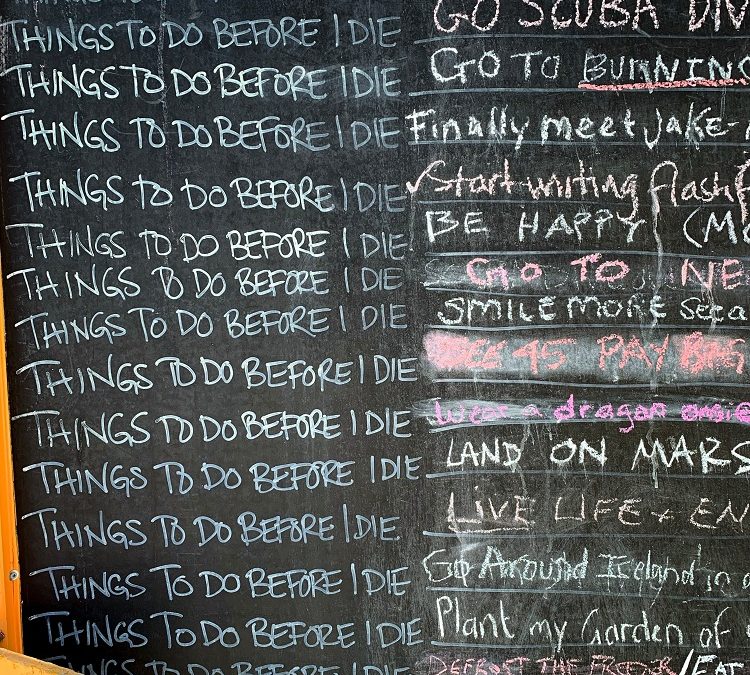 THINGS TO DO BEFORE I DIE GO SCUBA DIV
THINGS TO DO BEFORE I DIE GO TO BURNING
THINGS TO DO BEFORE I DIE Finally meet Jake
THINGS TO DO BEFORE I DIE ✓Start writing flash
THINGS TO DO BEFORE I DIE BE HAPPY (MO
THINGS TO DO BEFORE I DIE GO TO NE
THINGS TO DO BEFORE I DIE SMILE MORE
THINGS TO DO BEFORE I DIE 45 PAY
THINGS TO DO BEFORE I DIE Wear a dragon onsie
THINGS TO DO BEFORE I DIE LAND ON MARS
THINGS TO DO BEFORE I DIE LIVE LIFE + EN
THINGS TO DO BEFORE I DIE Go Around Ireland in a
THINGS TO DO BEFORE I DIE Plant my Garden of
THINGS TO DO BEFORE I DIE DEFROST THE FREEZER/EAT